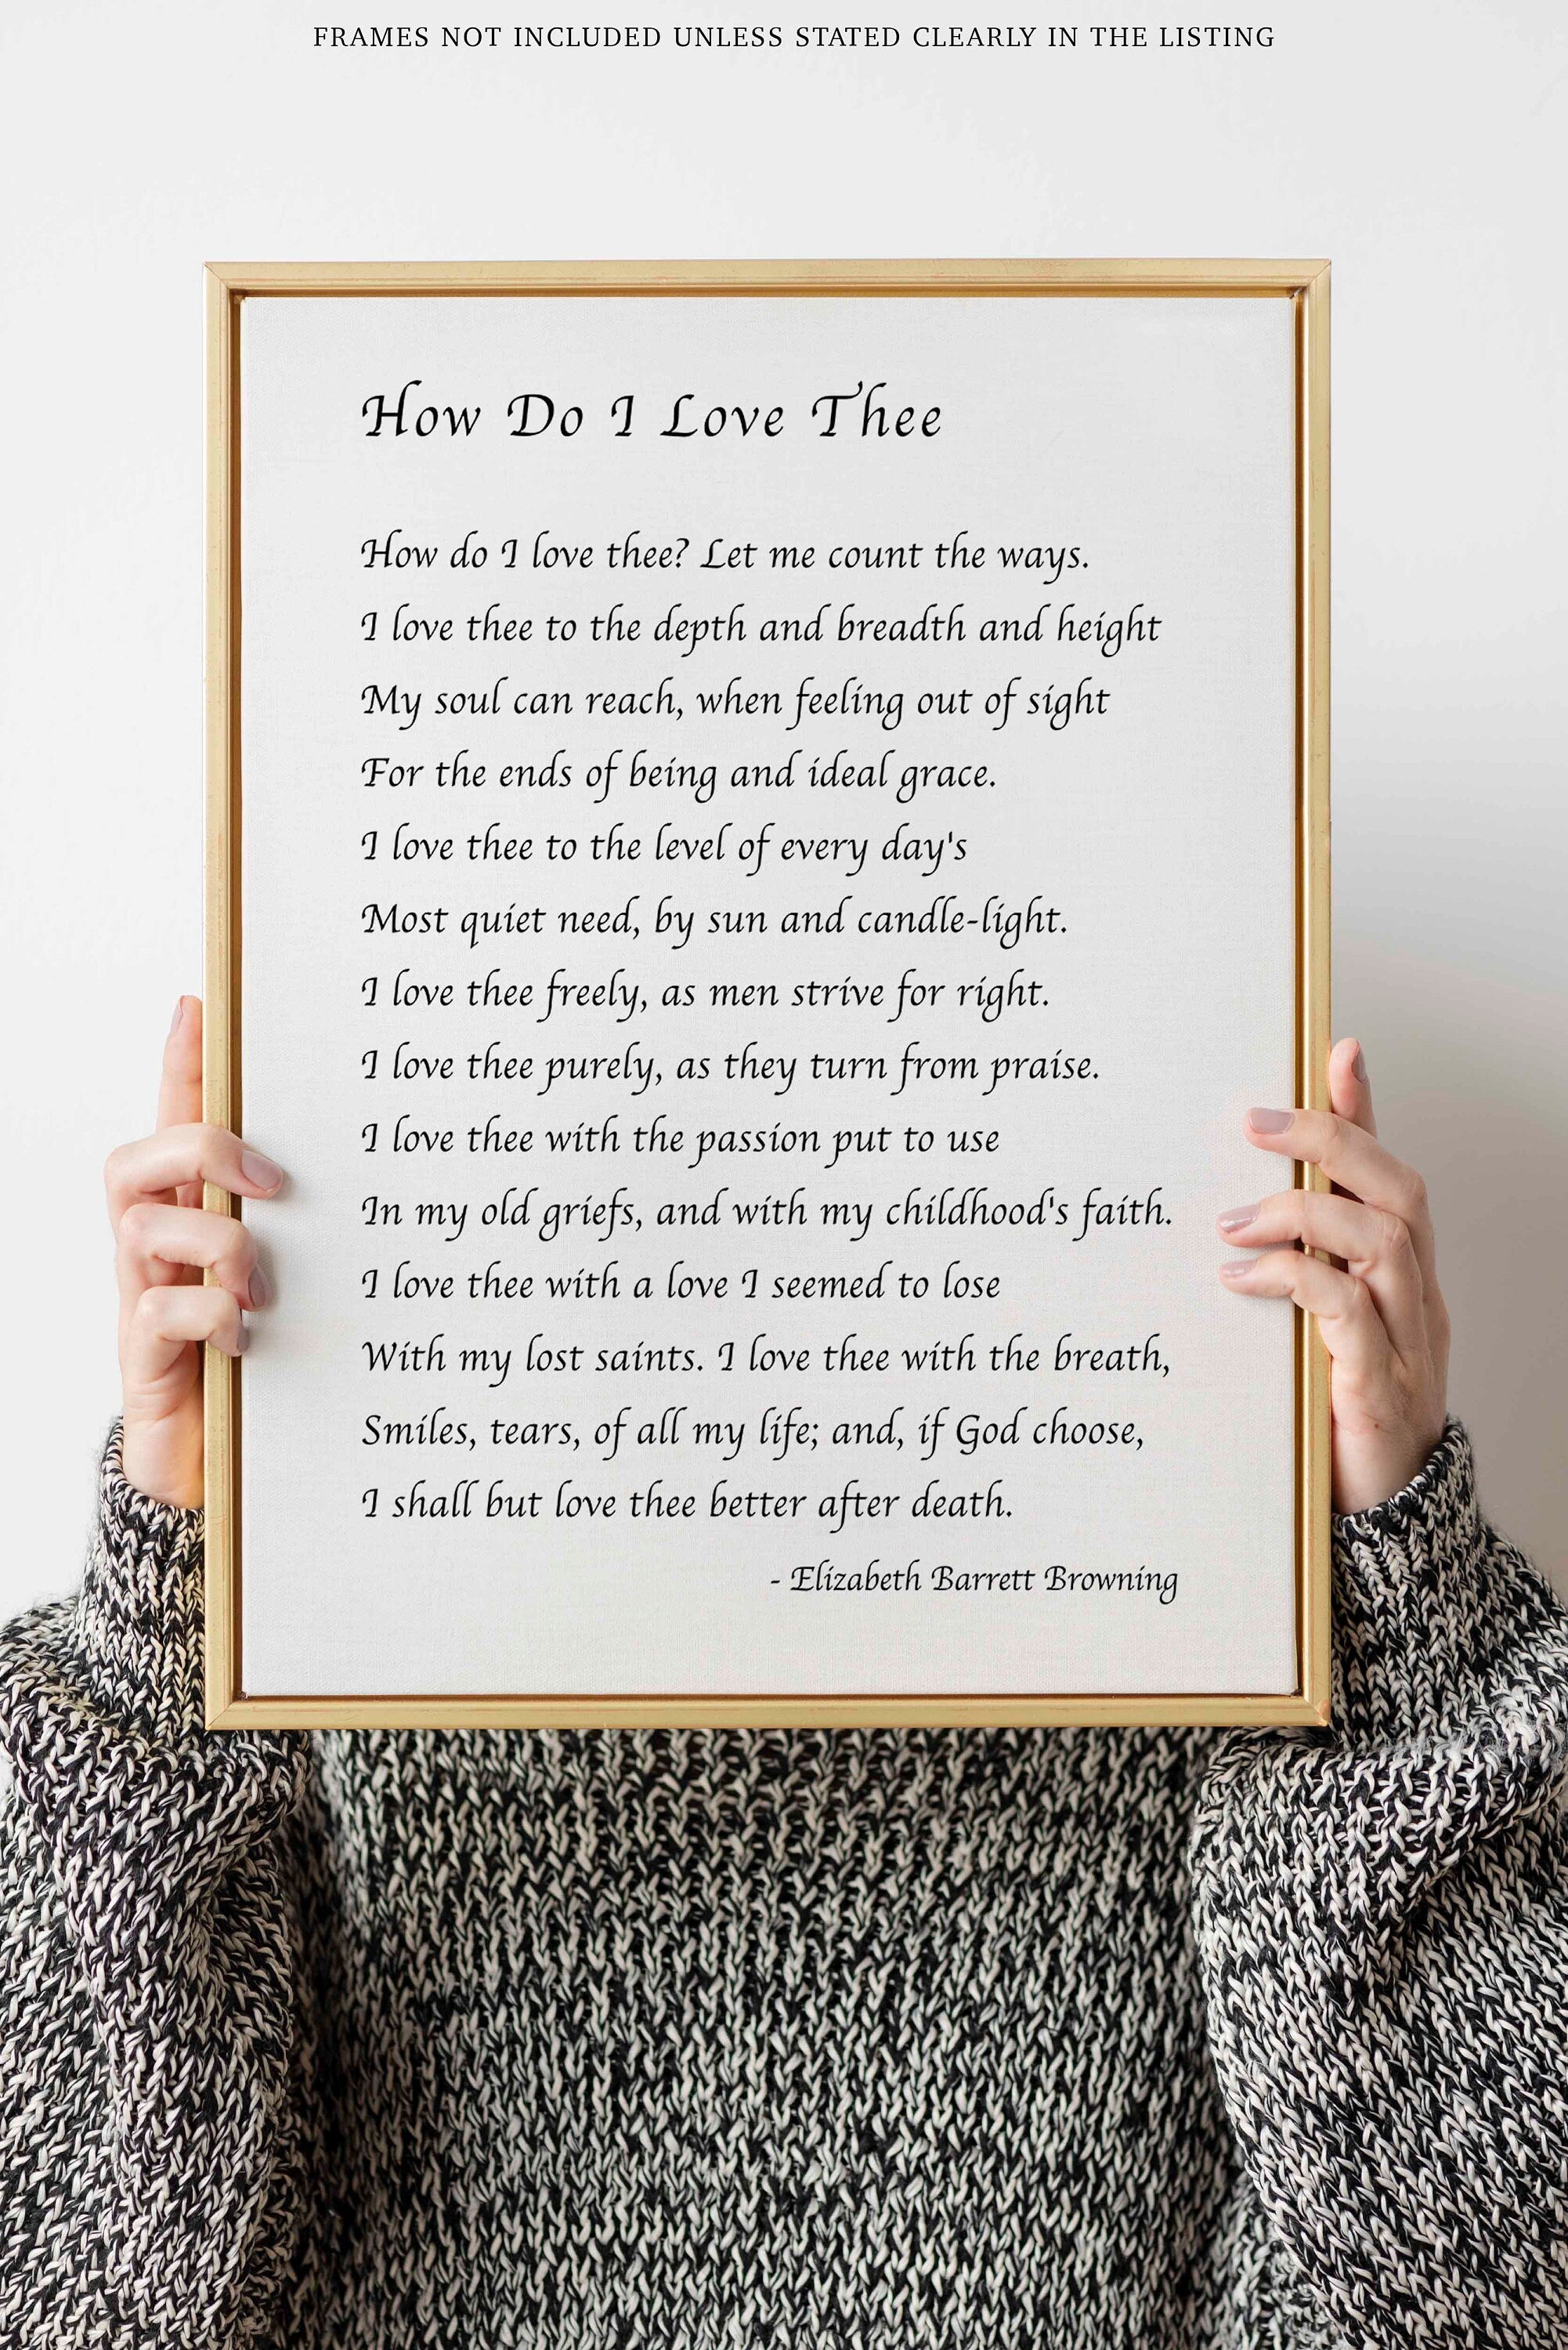 FRAMES NOT INCLUDED UNLESS STATED CLEARLY IN THE LISTING
How Do I Love Thee
How do I love thee? Let me count the ways.
I love thee to the depth and breadth and height
My soul can reach, when feeling out of sight
For the ends of being and ideal grace.
I love thee to the level of every day's
Most quiet need, by sun and candle-light.
I love thee freely, as men strive for right.
I love thee purely, as they turn from praise.
I love thee with the passion put to use
In my old griefs, and with my childhood's faith.
I love thee with a love I seemed to lose
With my lost saints. I love thee with the breath,
Smiles, tears, of all my life; and, if God choose,
I shall but love thee better after death.
- Elizabeth Barrett Browning